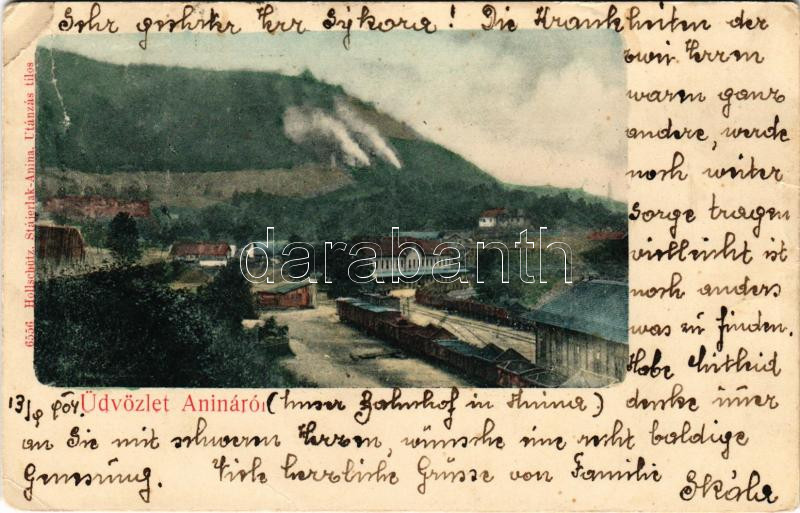 Sehr geehrter Herr Sýkora! Die Krankheiten der
zwei Herren
waren ganz
andere, werde
noch weiter
Sorge tragen
vielleicht ist
noch anders
was zu finden.
Habe Mitleid
denke immer
6556 Hollschütz, Stájerlak-Anina. Utánzás tilos
darabanth
Üdvözlet Anináról (Unser Bahnhof in Anina)
an Sie mit schweren Herzen, wünsche eine recht baldige
Genesung. Viele herzliche Grüsse von Familie
Skála